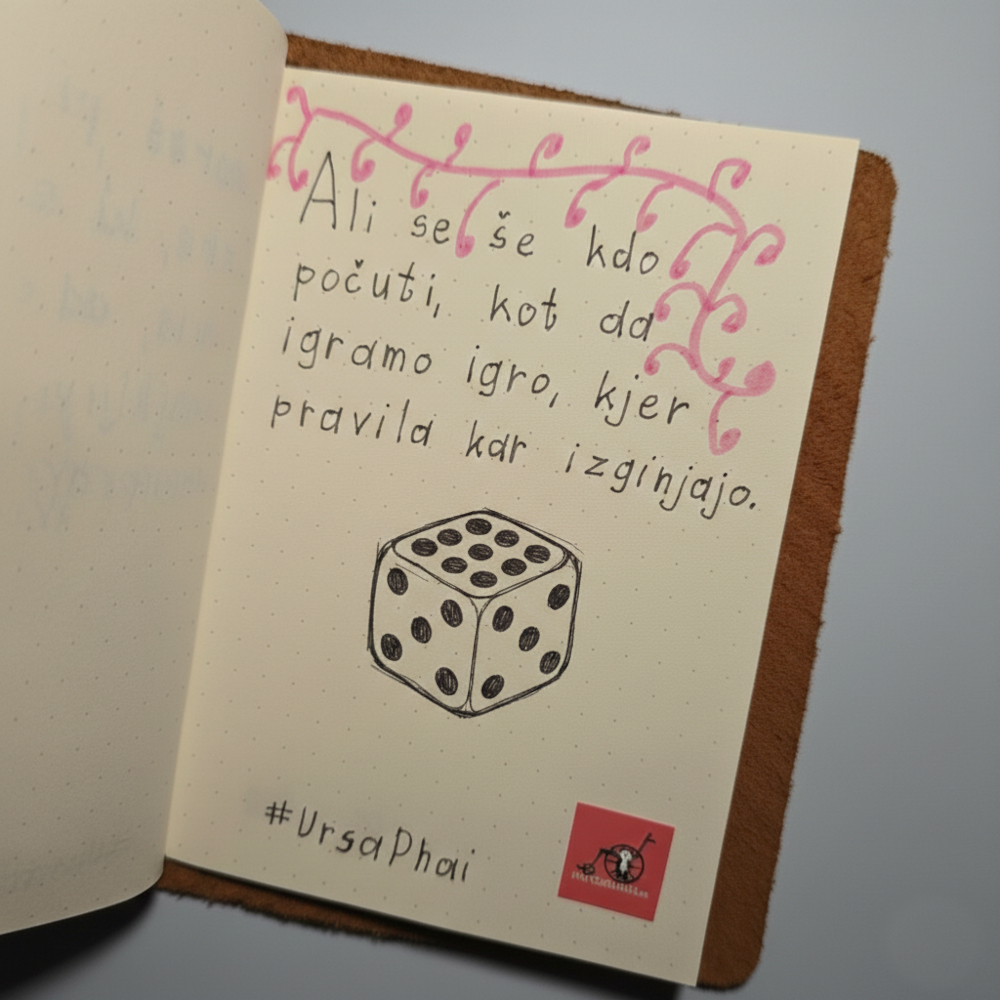 Ali se še kdo
počuti, kot da
igramo igro, kjer
pravila kar izginjajo.
#UrsaPhai